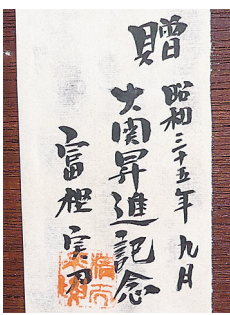 贈
昭和三十五年 九月
大関昇進記念
富樫実君